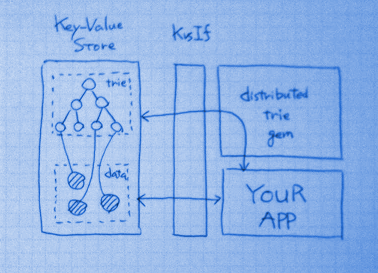 Key-Value
Store
KvsIf
trie
distributed
trie
gem
data
YOUR
APP